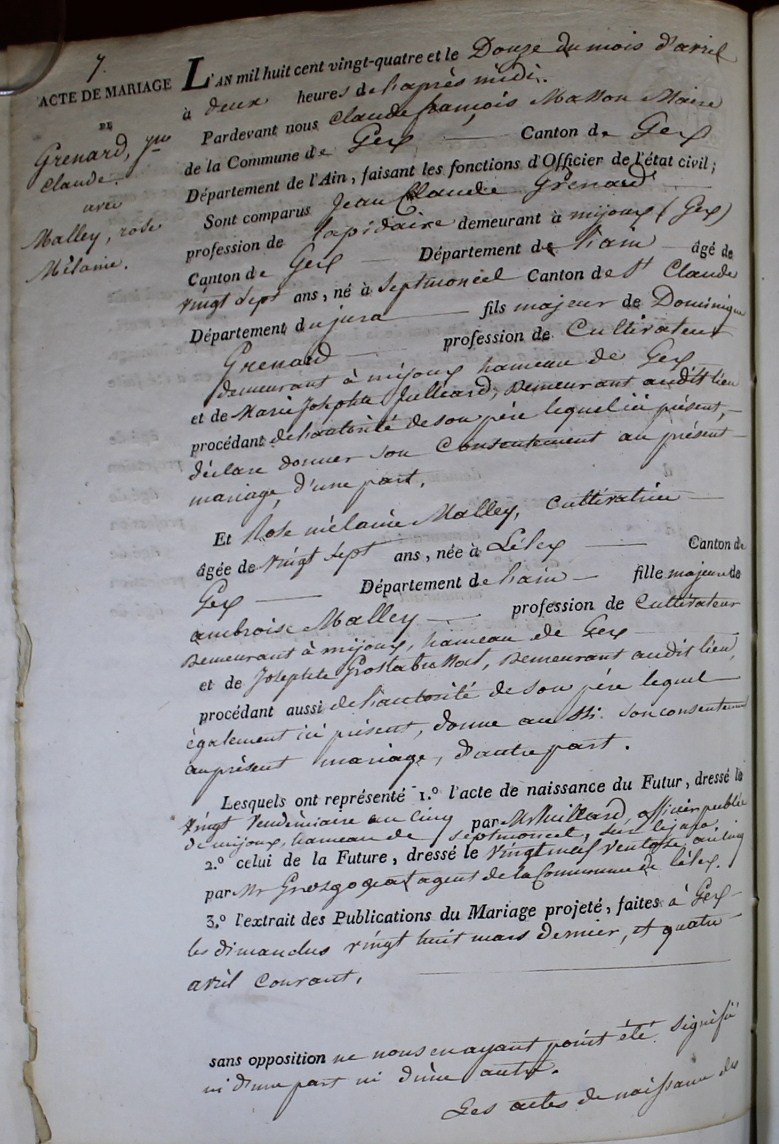 7.
ACTE DE MARIAGE
DE
Grenard, jn
Claude.
avec
Malley, rose
Mélanie.
L'AN mil huit cent vingt-quatre et le Douze du mois d'avril
à deux heures de l'après midi.
Pardevant nous Claude françois Masson Maire
de la Commune de Gex Canton de Gex
Département de l'Ain, faisant les fonctions d'Officier de l'état civil;
Sont comparus Jean Claude Grenard
profession de lapidaire demeurant à mijoux (Gex)
Canton de Gex Département de l'ain âgé de
vingt sept ans, né à Septmoncel Canton de St Claude
Département du jura fils majeur de Dominique
Grenard profession de Cultivateur
demeurant à mijoux hameau de Gex
et de Marie Josephte Julliard, Demeurant audit lieu
procédant de l'autorité de son père lequel ici présent,
déclare donner son Consentement au présent
mariage, d'une part.
Et Rose mélanie Malley, Cultivatrice
âgée de vingt sept ans, née à Lélex Canton de
Gex Département de l'ain fille majeure de
ambroise Malley profession de Cultivateur
Demeurant à mijoux, hameau de Gex
et de Josephte Grosfabussat, Demeurant audit lieu,
procédant aussi de l'autorité de son père lequel
également ici présent, donne aussi son consentement
au présent mariage, d'autre part.
Lesquels ont représenté 1.º l'acte de naissance du Futur, dressé le
vingt Vendémiaire an Cinq par Mr Juillard, officier public
de mijoux, hameau de Septmoncel, sur le jura,
2.º celui de la Future, dressé le vingt neuf ventose an cinq
par Mr Grosgogeat agent de la Commune de Lélex.
3.º l'extrait des Publications du Mariage projeté, faites à Gex
les dimanches vingt huit mars dernier, et quatre
avril courant,
sans opposition ne nous en ayant point été signifié
ni d'une part ni d'une autre.
Les actes de naissance des